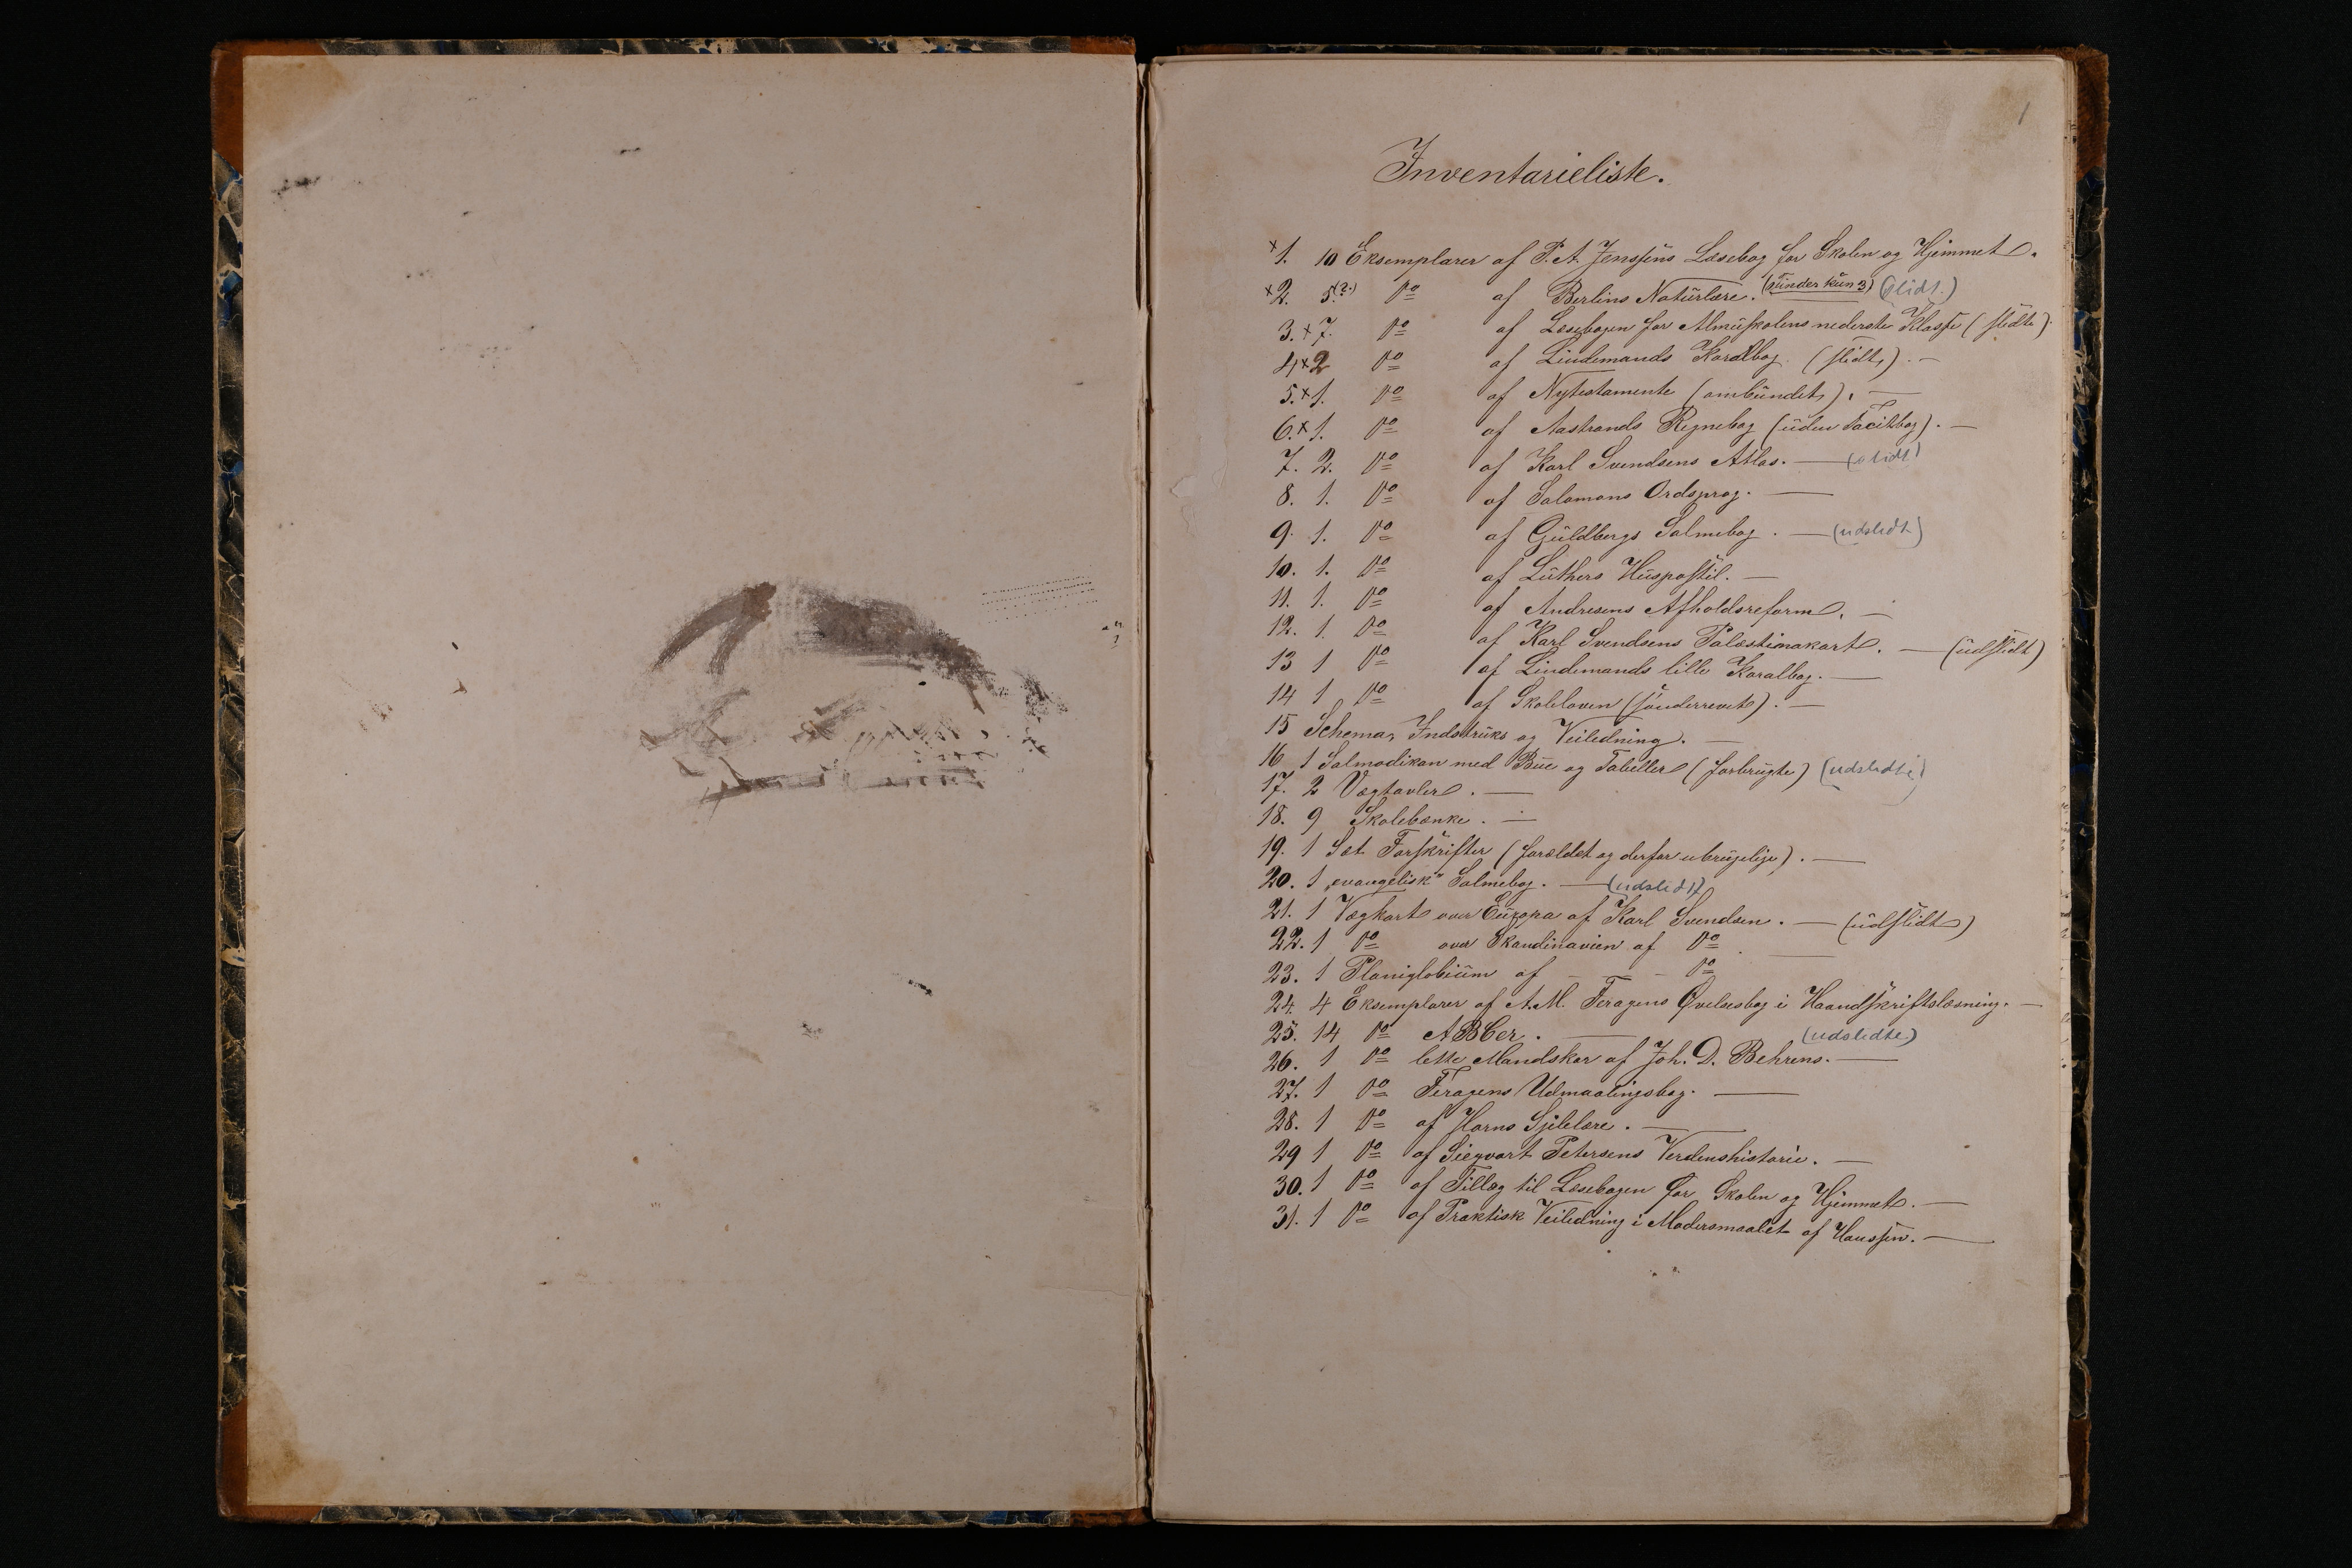 1
Inventarieliste.
×1. 10 Eksemplarer af P. A. Jenssens Læsebog for Skolen og Hjemmet.
×2. 5(?) Do af Berlins Naturlære. (kun 3) (slidt.)
3.×7. Do af Læsebogen for Almuskolens nederste Klasse (slidte).
4×2 Do af Lindemands Koralbog (slidt,). —
5.×1. Do af Nytestamente (ombundet). —
6.×1. Do af Aastrands Regnebog (uden Facitbog). —
7. 2. Do af Karl Svendsens Atlas. — (slidt)
8. 1. Do af Salamons Ordsprog. —
9. 1. Do af Guldbergs Salmebog. — (udslidt)
10. 1. Do af Luthers Huspostil. —
11. 1. Do af Andresens Afholdsreform. —
12. 1. Do af Karl Svendsens Palæstinakart. — (udslidt)
13 1 Do af Lindemands lille Koralbog. —
14 1 Do af Skoleloven (sönderrevet). —
15 Schema, Indstruks og Veiledning. —
16 1 Salmodikon med Bue og Tabeller (forbrugte) (udslidte)
17. 2 Vægtavler. —
18. 9 Skolebænke. —
19. 1 Sæt Forskrifter (forældet og derfor ubrugelige). —
20. 1 „evangelisk" Salmebog. — (udslidt)
21. 1 Vægkart over Europa af Karl Svendsen. — (udslidt)
22. 1 Do over Skandinavien af Do. —
23. 1 Planiglobium af — — Do
24. 4 Eksemplarer af A.M. Feragens Øvelsesbog i Haandskriftslæsning. —
25. 14 Do ABCer. — (udslidte)
26. 1 Do lette Mandskor af Joh. D. Behrens. —
27. 1 Do Feragens Udmaalingsbog. —
28. 1 Do af Horns Sjelelære. —
29 1 Do af Siegvart Petersens Verdenshistorie. —
30. 1 Do af Tillæg til Læsebogen for Skolen og Hjemmet. —
31. 1 Do af Praktisk Veiledning i Modersmaalet af Haussen. —